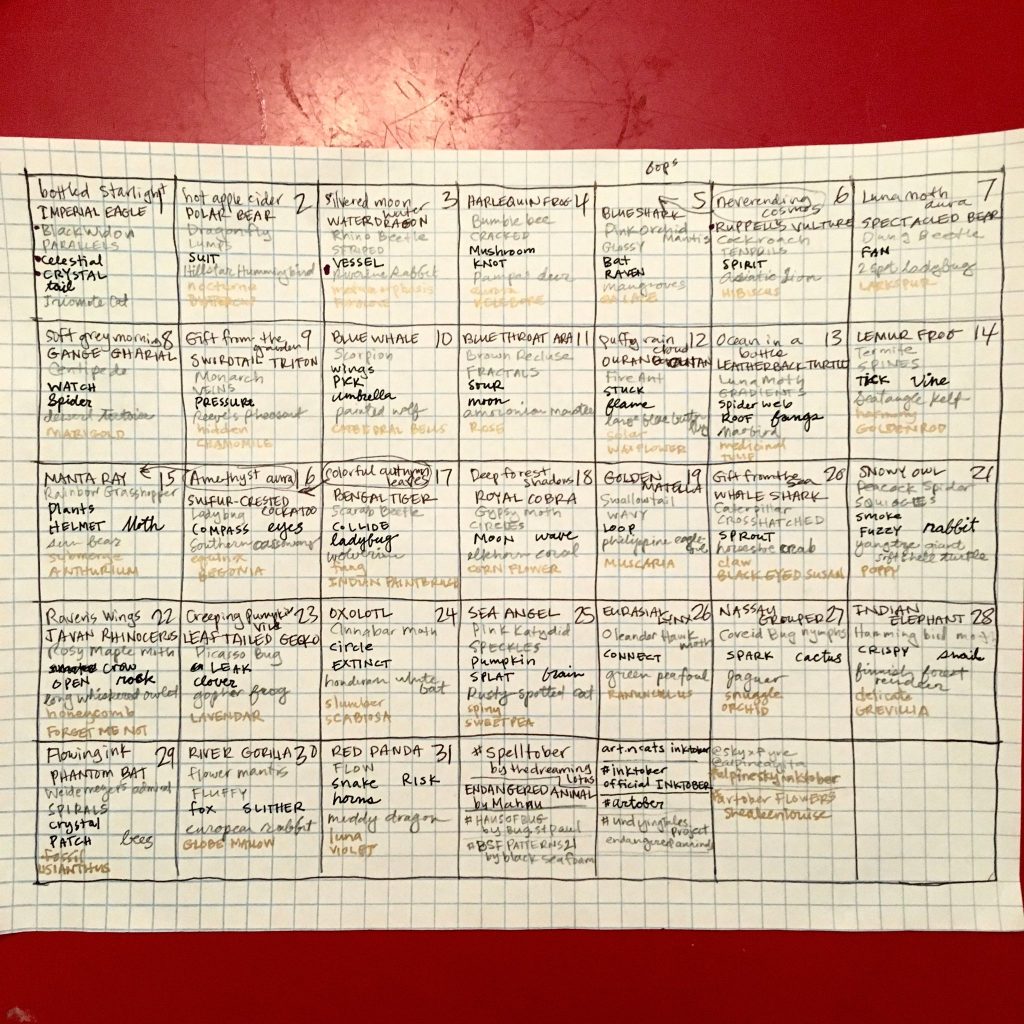 oops
bottled starlight 1
IMPERIAL EAGLE
Black Widow
PARALLELS
celestial
CRYSTAL
tail
Iriomote Cat
hot apple cider 2
POLAR BEAR
Dragonfly
LUMPS
SUIT
Hillstar Hummingbird
nocturne
BUTTERCUP
silvered moon 3
water
WATERDRAGON
Rhino Beetle
STRIPED
VESSEL
Riverine Rabbit
metamorphosis
HARLEQUIN FROG 4
Bumble bee
CRACKED
Mushroom
KNOT
Pampas deer
HELLEBORE
5
BLUE SHARK
Pink Orchid
Mantis
GLOSSY
Bat
RAVEN
mangroves
neverending 6
cosmos
RUPPELL'S VULTURE
Cockroach
TENDRILS
SPIRIT
Asiatic Lion
HIBISCUS
Luna moth 7
aura
SPECTACLED BEAR
Dung Beetle
FAN
2 spot Ladybug
LARKSPUR
soft grey morning 8
GANGE GHARIAL
Centipede
WATCH
Spider
desert tortoise
MARIGOLD
Gift from the 9
garden
SWORDTAIL TRITON
Monarch
VEINS
PRESSURE
Reeve's Pheasant
hidden
CHAMOMILE
BLUE WHALE 10
Scorpion
wings
PICK
umbrella
painted wolf
CATHEDRAL BELLS
BLUETHROAT ARA 11
Brown Recluse
FRACTALS
SOUR
moon
amazonian manatee
ROSE
puffy rain 12
cloud
OURANGOUTAN
Fire Ant
STUCK
flame
large blue butterfly
solar
WALLFLOWER
Ocean in a 13
bottle
LEATHERBACK TURTLE
Luna moth
GRADIENTS
spider web
ROOF fangs
medicinal
TULIP
LEMUR FROG 14
Termite
SPINES
TICK Vine
GOLDENROD
MANTA RAY 15
Rainbow Grasshopper
Plants
HELMET Moth
sun bear
submerge
ANTHURIUM
Amethyst aura 16
SULFUR-CRESTED
COCKATOO
Ladybug
COMPASS eyes
Southern cassowary
BEGONIA
Colorful autumn 17
leaves
BENGAL TIGER
Scarab Beetle
COLLIDE
ladybug
wolverine
fang
INDIAN PAINTBRUSH
Deep forest 18
shadows
ROYAL COBRA
Gypsy moth
CIRCLES
MOON wave
elkhorn coral
CORN FLOWER
GOLDEN 19
MATELLA
Swallowtail
WAVY
LOOP
philippine eagle
owl
MUSCARIA
Gift from the 20
sea
WHALE SHARK
Caterpillar
CROSSHATCHED
SPROUT
horseshoe crab
claw
BLACK EYED SUSAN
SNOWY OWL 21
Peacock Spider
SQUIGGLES
smoke
FUZZY rabbit
yangtze giant
softshell turtle
POPPY
Raven's Wings 22
JAVAN RHINOCEROS
Rosy Maple Moth
crow
OPEN rock
long whiskered owlet
honeycomb
FORGET ME NOT
Creeping pumpkin 23
vine
LEAF TAILED GECKO
Picasso Bug
LEAK
clover
gopher frog
LAVENDAR
OXOLOTL 24
Cinnabar moth
circle
EXTINCT
honduran white
bat
slumber
SCABIOSA
SEA ANGEL 25
Pink Katydid
SPECKLES
Pumpkin
SPLAT brain
Rusty spotted cat
spiny
SWEETPEA
EURASIAN 26
LYNX
Oleander Hawk
moth
CONNECT
green peafoul
RANUNCULUS
NASSAY 27
GROUPER
Coreid Bug nymphs
SPARK cactus
jaguar
snuggle
ORCHID
INDIAN 28
ELEPHANT
Humming bird moth
CRISPY snail
finnish forest
reindeer
delicate
GREVILLIA
Flowing ink 29
PHANTOM BAT
Weidemeyers admiral
SPIRALS
crystal
PATCH bees
fossil
LISIANTHUS
RIVER GORILLA 30
flower mantis
FLUFFY
fox SLITHER
european rabbit
GLOBE MALLOW
RED PANDA 31
FLOW
snake RISK
horns
muddy dragon
luna
VIOLET
#spelltober
by thedreaming
lotus
ENDANGERED ANIMAL
by Mahau
#HAUSOFBUG
by bugstpaul
#BSFPATTERNS21
by blackseafoam
art.n.cats inktober
#inktober
official INKTOBER
#artober
#undyingtales
project
endangered animals
@skyxpure
@alpinedigita
#alpineskyinktober
#artober FLOWERS
sneakenlouise